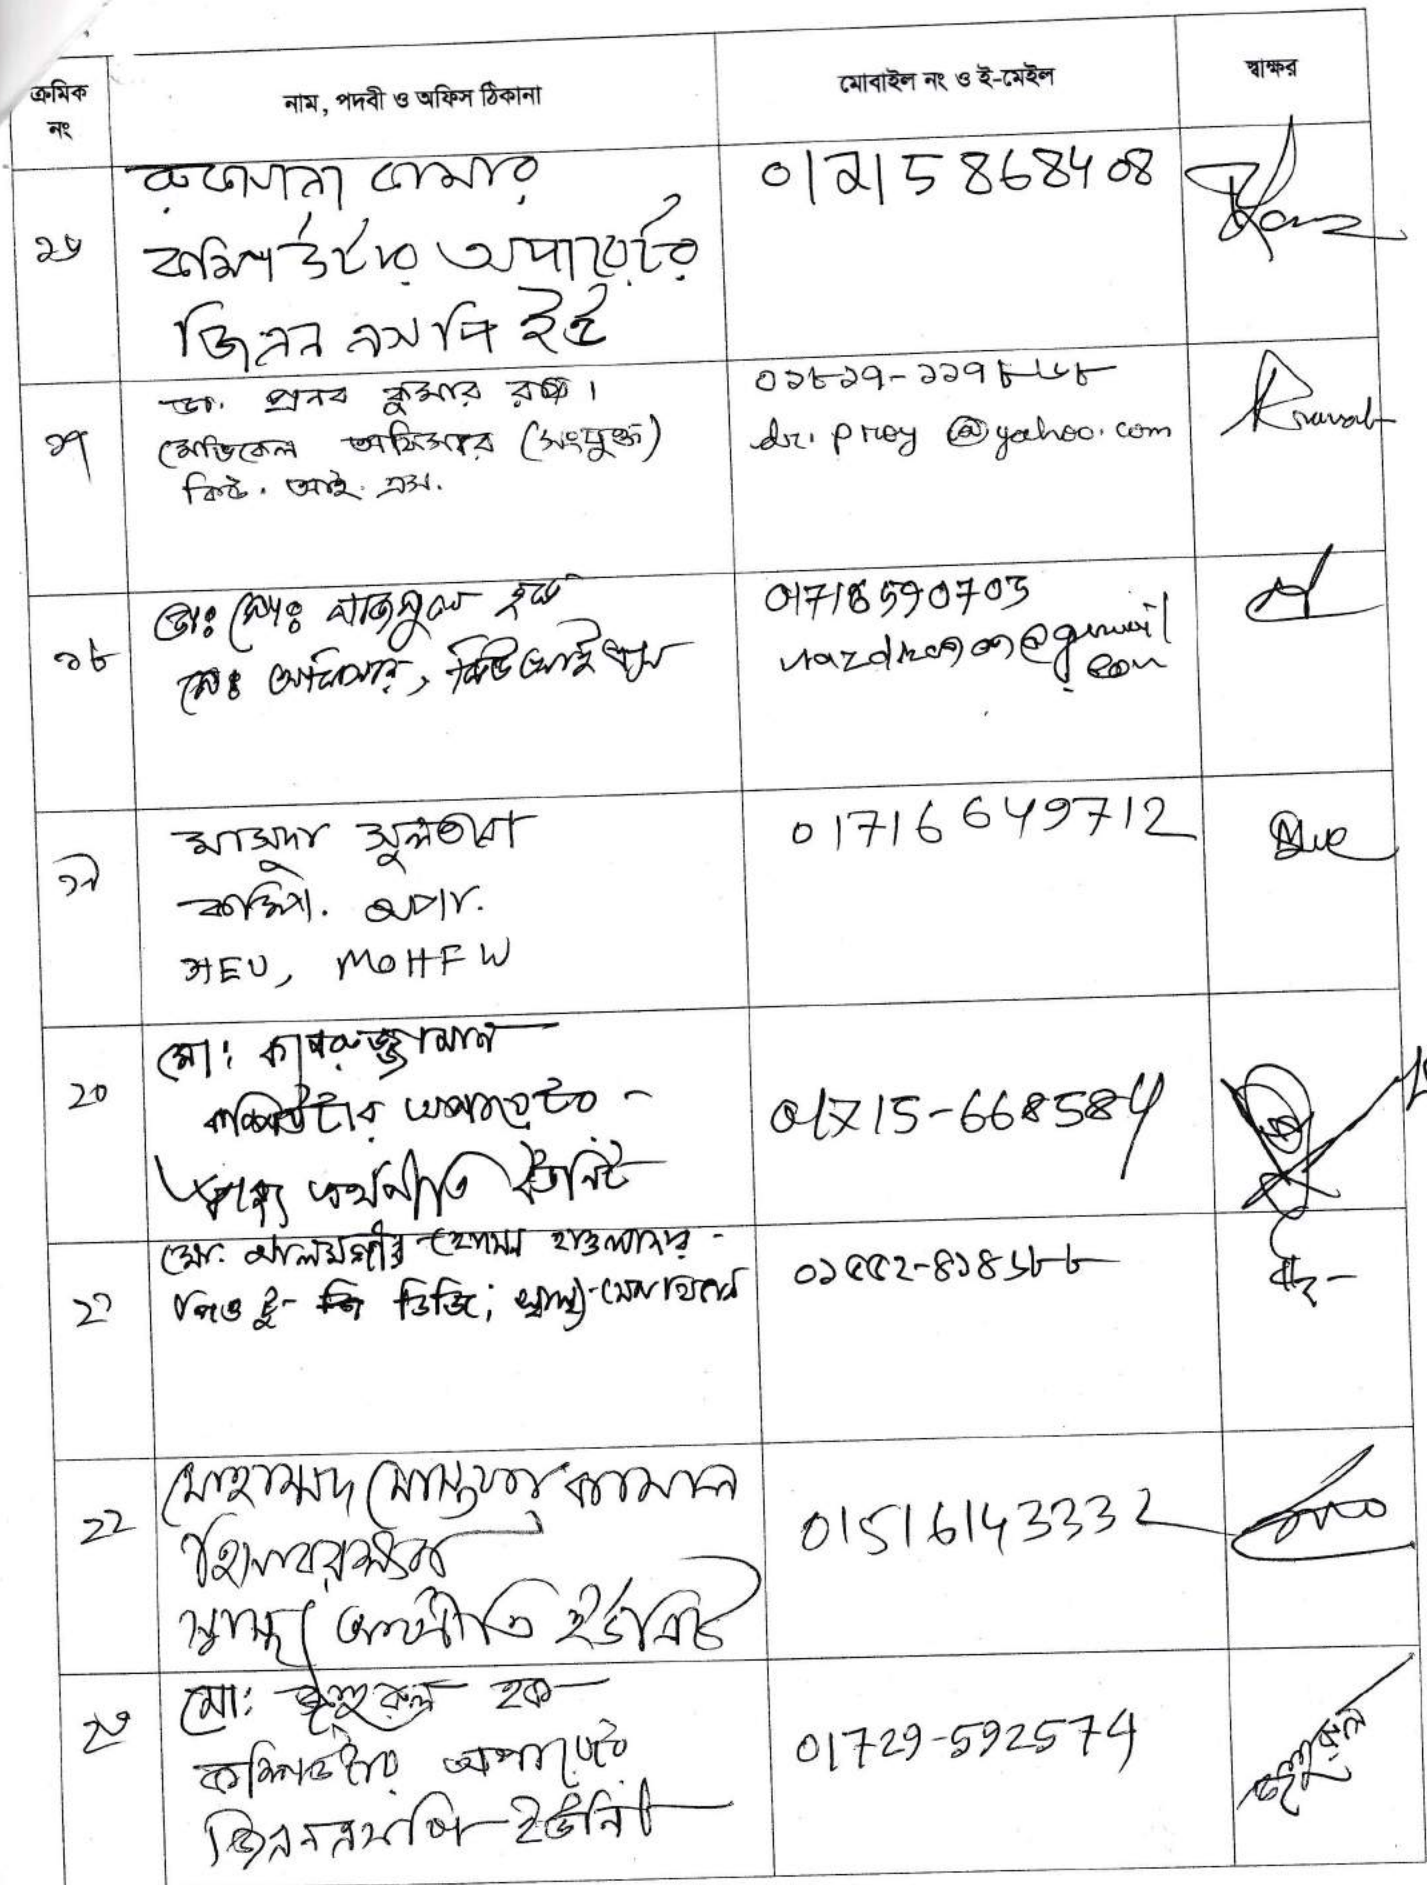 ক্রমিক নং
নাম, পদবী ও অফিস ঠিকানা
মোবাইল নং ও ই-মেইল
স্বাক্ষর
১৬
কম্পিউটার অপারেটর
জিএনএসপি ইউ
১৭
ডা. প্রনব কুমার রায়।
মেডিকেল অফিসার (সংযুক্ত)
কিউ. আই. এস.
০১৮১৭-১১৭৮৬৮
dr. proy @yahoo.com
১৮
ডাঃ মোঃ নাজমুল হক
মেঃ অফিসার, কিউআইএস
01716590703
১৯
মাসুদা সুলতানা
কম্পি. অপা.
HEU, MOHFW
01716649712
২০
মো: কামরুজ্জামান
কম্পিউটার অপারেটর -
স্বাস্থ্য অর্থনীতি ইউনিট
01715-668584
২১
মো. আলমগীর হোসেন হাওলাদার -
পিও টু- ডিজি; স্বাস্থ্য-সেবা বিভাগ
০১৫৫২-৪১৪১৮৮
২২
মোহাম্মদ মোস্তফা কামাল
হিসাবরক্ষক
স্বাস্থ্য অর্থনীতি ইউনিট
01516143332
২৩
মো: হক
কম্পিউটার অপারেটর
জিএনএসপি ইউনিট
01729-592574